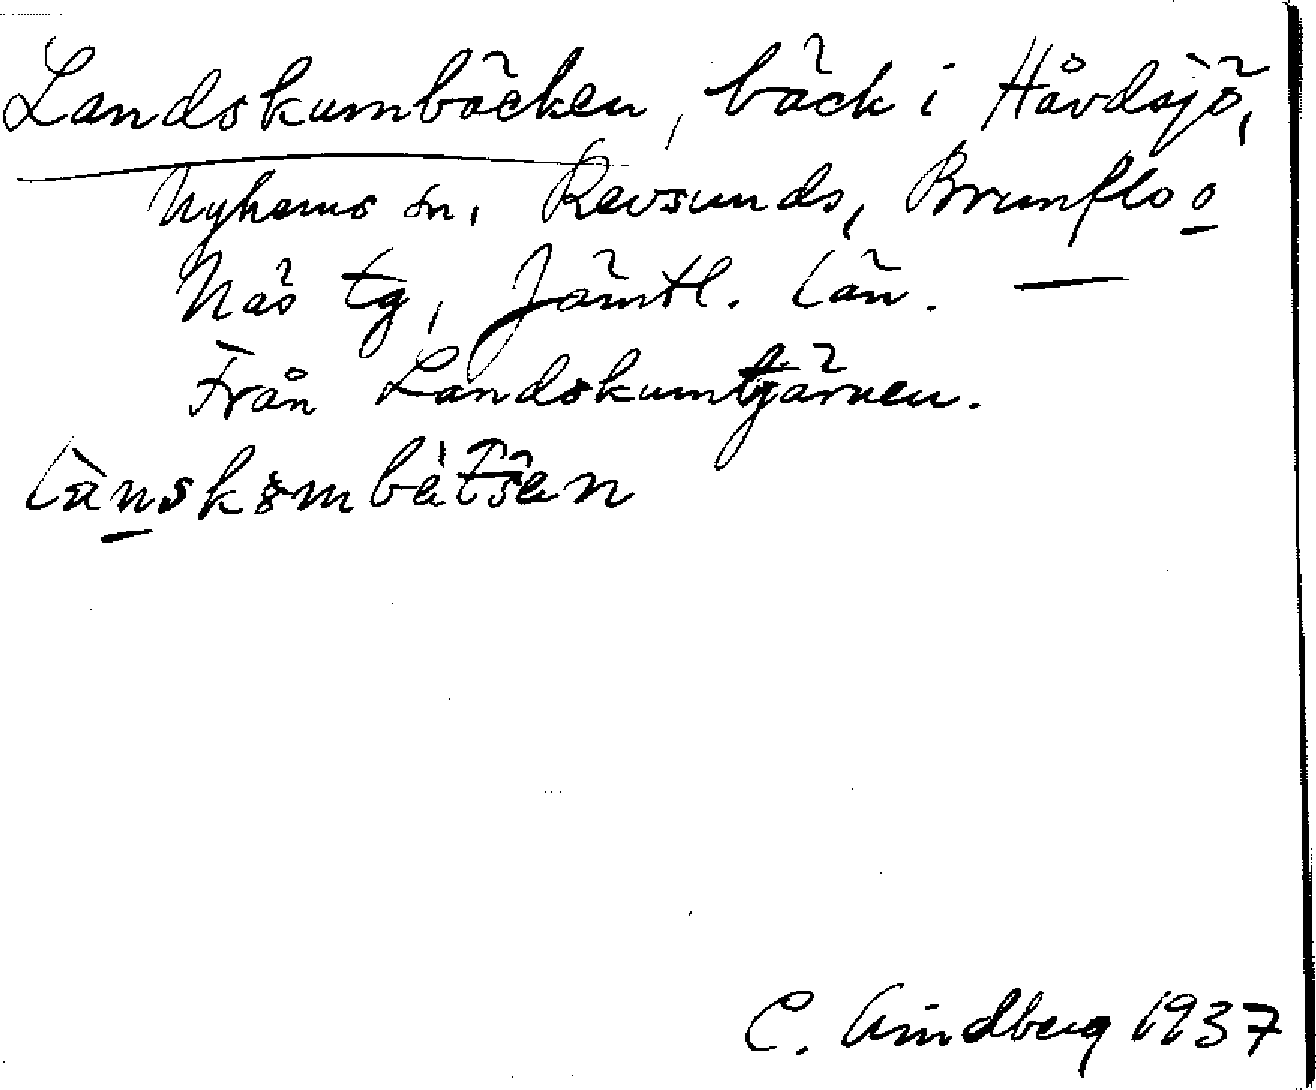 Landskumbäcken, bäck i Håvdsjö,
Nyhems sn, Revsunds, Brunflo o
Näs tg, Jämtl. län. —
Från Landskumtjärnen.
C. Lindberg 1937